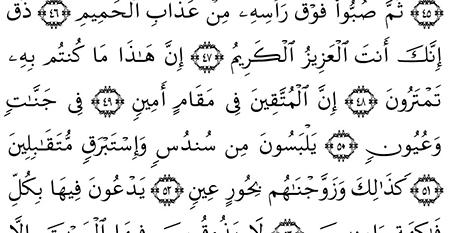 ﴿٤٥﴾ ثُمَّ صُبُّوا۟ فَوْقَ رَأْسِهِۦ مِنْ عَذَابِ ٱلْحَمِيمِ ﴿٤٦﴾ ذُقْ
إِنَّكَ أَنتَ ٱلْعَزِيزُ ٱلْكَرِيمُ ﴿٤٧﴾ إِنَّ هَٰذَا مَا كُنتُم بِهِۦ
تَمْتَرُونَ ﴿٤٨﴾ إِنَّ ٱلْمُتَّقِينَ فِى مَقَامٍ أَمِينٍ ﴿٤٩﴾ فِى جَنَّٰتٍ
وَعُيُونٍ ﴿٥٠﴾ يَلْبَسُونَ مِن سُندُسٍ وَإِسْتَبْرَقٍ مُّتَقَٰبِلِينَ
﴿٥١﴾ كَذَٰلِكَ وَزَوَّجْنَٰهُم بِحُورٍ عِينٍ ﴿٥٢﴾ يَدْعُونَ فِيهَا بِكُلِّ